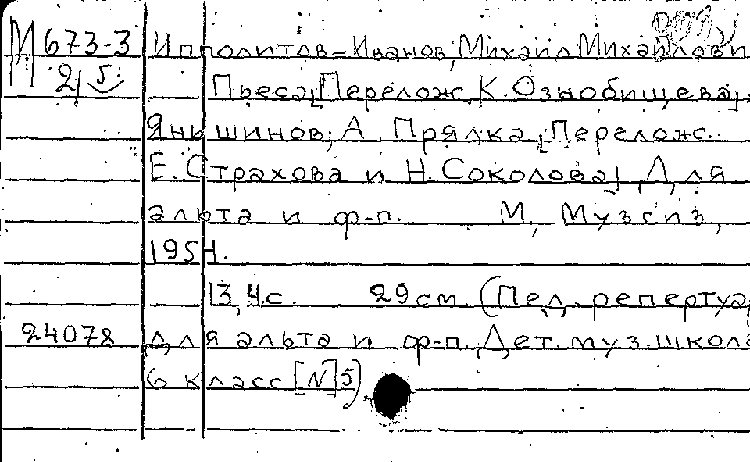 М 673-3 Ипполитов-Иванов, Михаил Михайлович
2/5 Пьеса [Перелож. К. Ознобищева].
Яньшинов, А. Прялка. [Перелож.
Е. Страхова и Н. Соколова]. Для
альта и ф-п. М., Музгиз,
1954.
13, 4 с. 29 см. (Пед. репертуар
24078 для альта и ф-п. Дет. муз. школа
6 класс [N] 5).